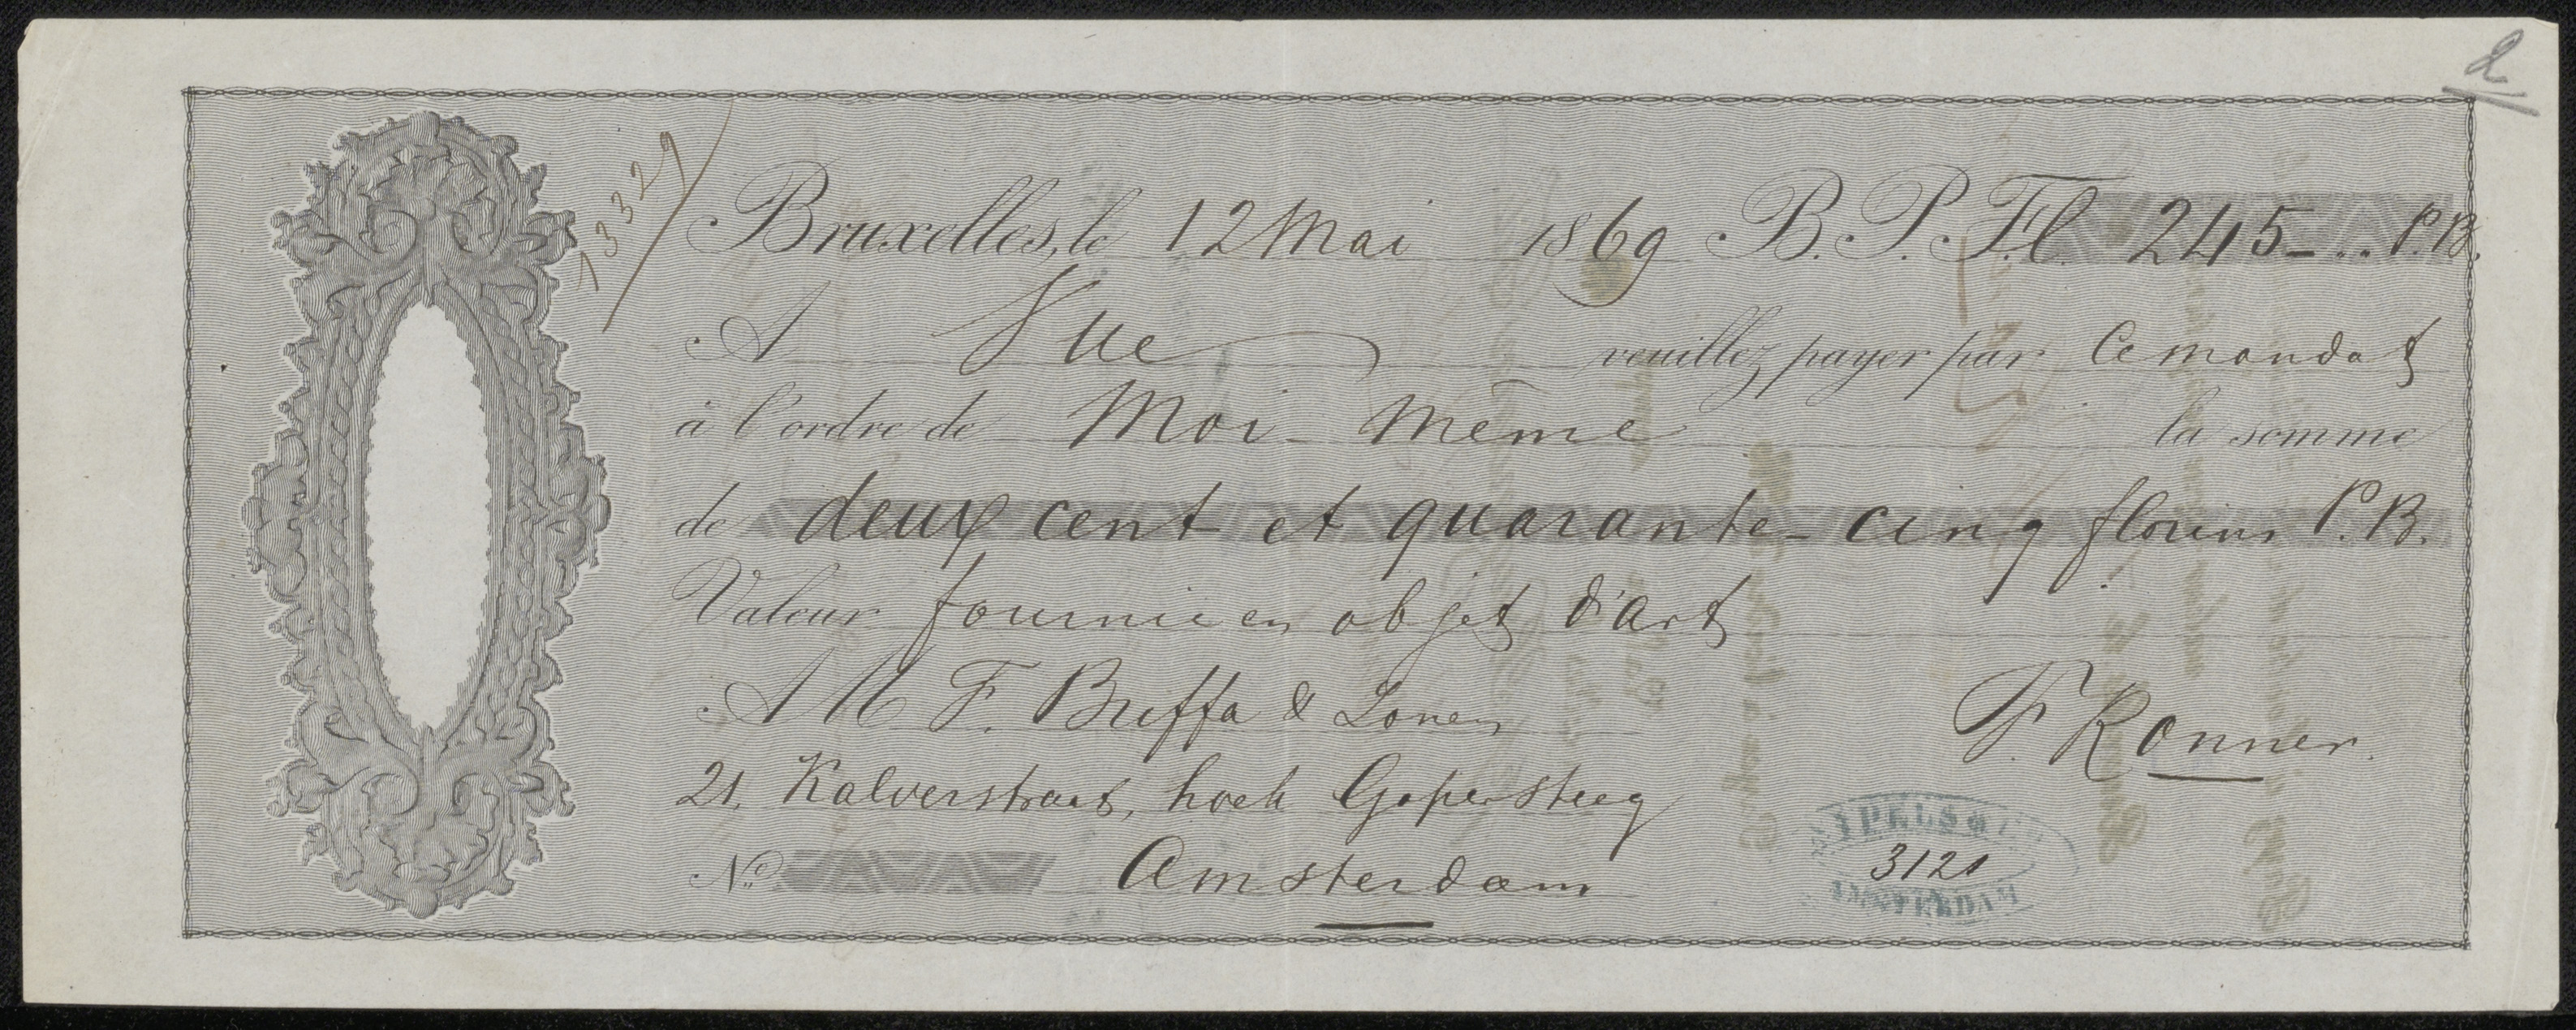 2
13329
Bruxelles, le 12 Mai 1869 B.P. Fl. 245-.. P.B.
A Vue veuillez payer par ce mandat
à l'ordre de Moi-Même la somme
de deux cent et quarante-cinq florins P.B.
Valeur fournie en objet d'art
A M F. Buffa & Zonen
21. Kalverstraat, hoek Gapersteeg
P. Ronner.
No. Amsterdam
3121
AMSTERDAM